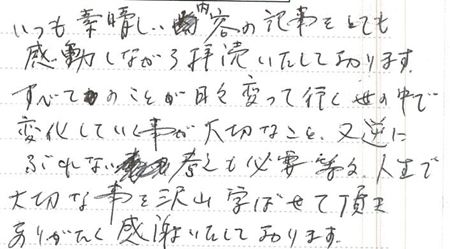 いつも素晴しい内容の記事をとても
感動しながら拝読いたしております。
すべてのことが日々変って行く世の中で
変化していく事が大切なこと、又逆に
ぶれない考えも必要な
人生で
大切な事を沢山学ばせて頂き
ありがたく感謝いたしております。